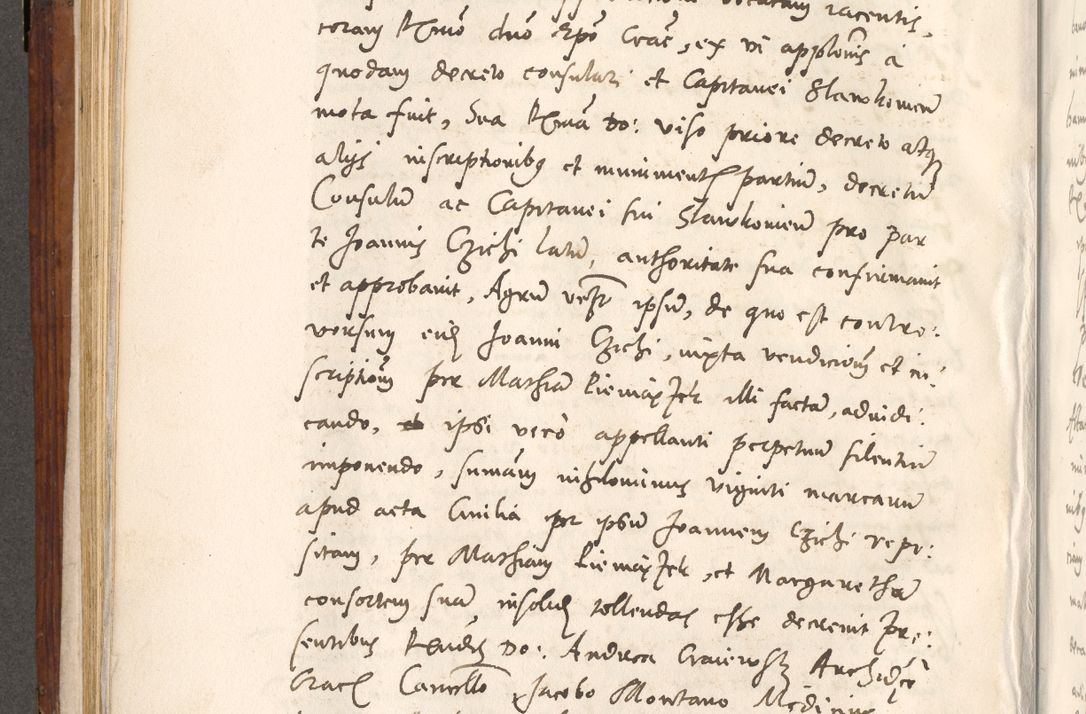 vocatam iacentis,
coram Rmo dno Epo Crac, ex vi applonis a
quodam decreto consulari et Capitanei Slawkowien
mota fuit, Sua Rma Do: viso priore decreto atq
alijs inscriptionibq et munimentis partium, decretum
Consulum ac Capitanei sui Slawkowien pro par
te Joannis Czichi latum, authoritate sua confirmavit
et approbavit, Agrum vero ipsum, de quo est contro:
versum eidem Joanni Czichi, iuxta vendicionem et in:
scriptionem per Mathiam Piemiążek illi factam, adiudi:
cando, ipsi vero appellanti perpetuum silentium
imponendo, summam nihilominus viginti marcarum
apud acta Civilia per ipsum Joannem Czichi repo:
sitam, per Mathiam Piemiążek, et Margaretham
consortem suam insolidum tollendas esse decrevit Pre:
sentibus Rendis Do: Andrea Archid
Crac Cancello Jacobo Montano Medicine